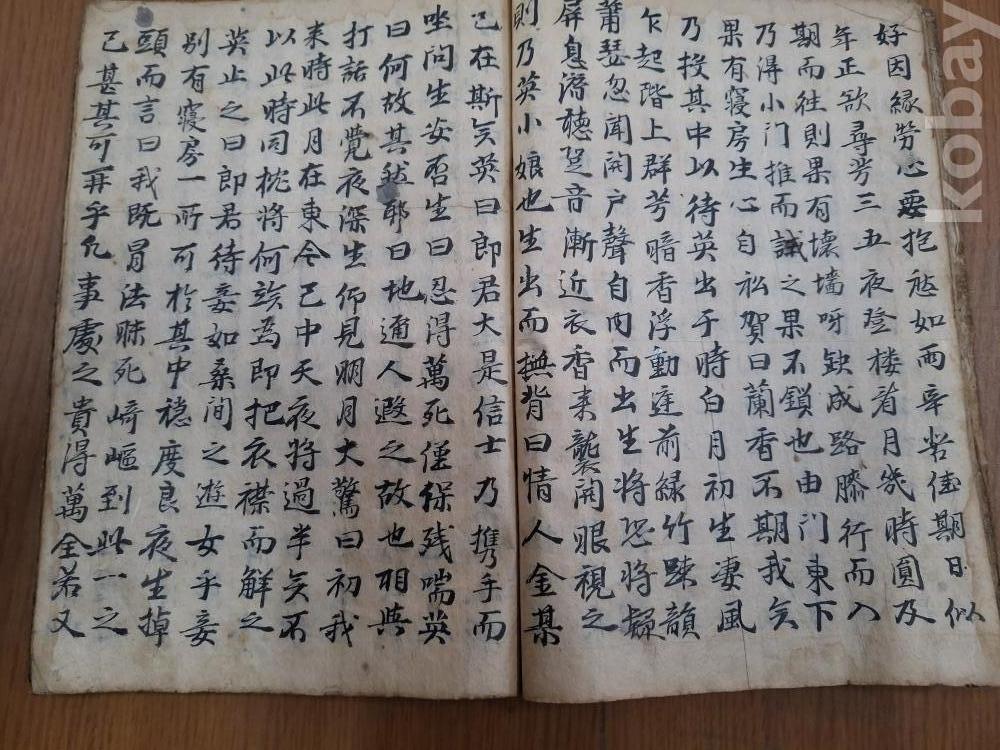 好因緣勞心要抱愁如雨辛苦佳期日似
年正欲尋芳三五夜登楼看月幾時圓及
期而往則果有壞墻呀缺成路膝行而入
乃得小門推而試之果不鎖也由門東下
果有寢房生心自私賀曰蘭香不期我矣
乃投其中以待英出于時白月初生凄風
乍起階上群芳暗香浮動庭前緑竹踈韻
蕭瑟忽聞開戶聲自內而出生將恐將疑
屏息潛聽跫音漸近衣香来襲開眼視之
則乃英小娘也生出而撫背曰情人金某
已在斯矣英曰郎君大是信士乃携手而
坐問生安否生曰忍得萬死僅保残喘英
曰何故其然耶曰地邇人遐之故也相與
打話不覺夜深生仰見明月大驚曰初我
来時此月在東今已中天夜將過半矣不
以此時同枕將何竢為即把衣襟而解之
英止之曰郎君待妾如桑間之遊女乎妾
別有寢房一所可於其中穏度良夜生掉
頭而言曰我既冒法昧死崎嶇到此一之
已甚其可再乎凡事處之貴得萬全若又
kobay